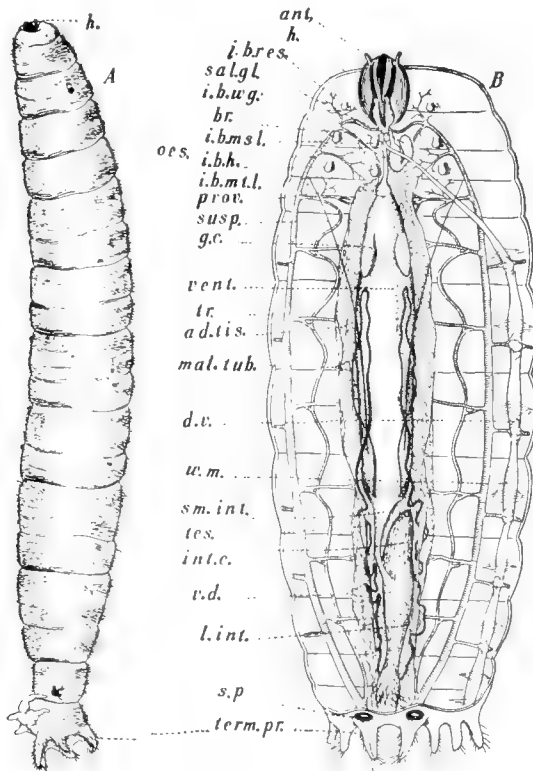 ant,
h.
h.
A
B
i.b.res.
sal.gl.
i.b.w g.
br.
i.b.ms l.
oes.
i.b.h.
i.b.mt.l.
prov.
susp.
g.c.
vent.
tr.
ad.tis.
mal.tub.
d.v.
w.m.
sm.int.
tes.
int.c.
v.d.
l.int.
s.p
term.pr.